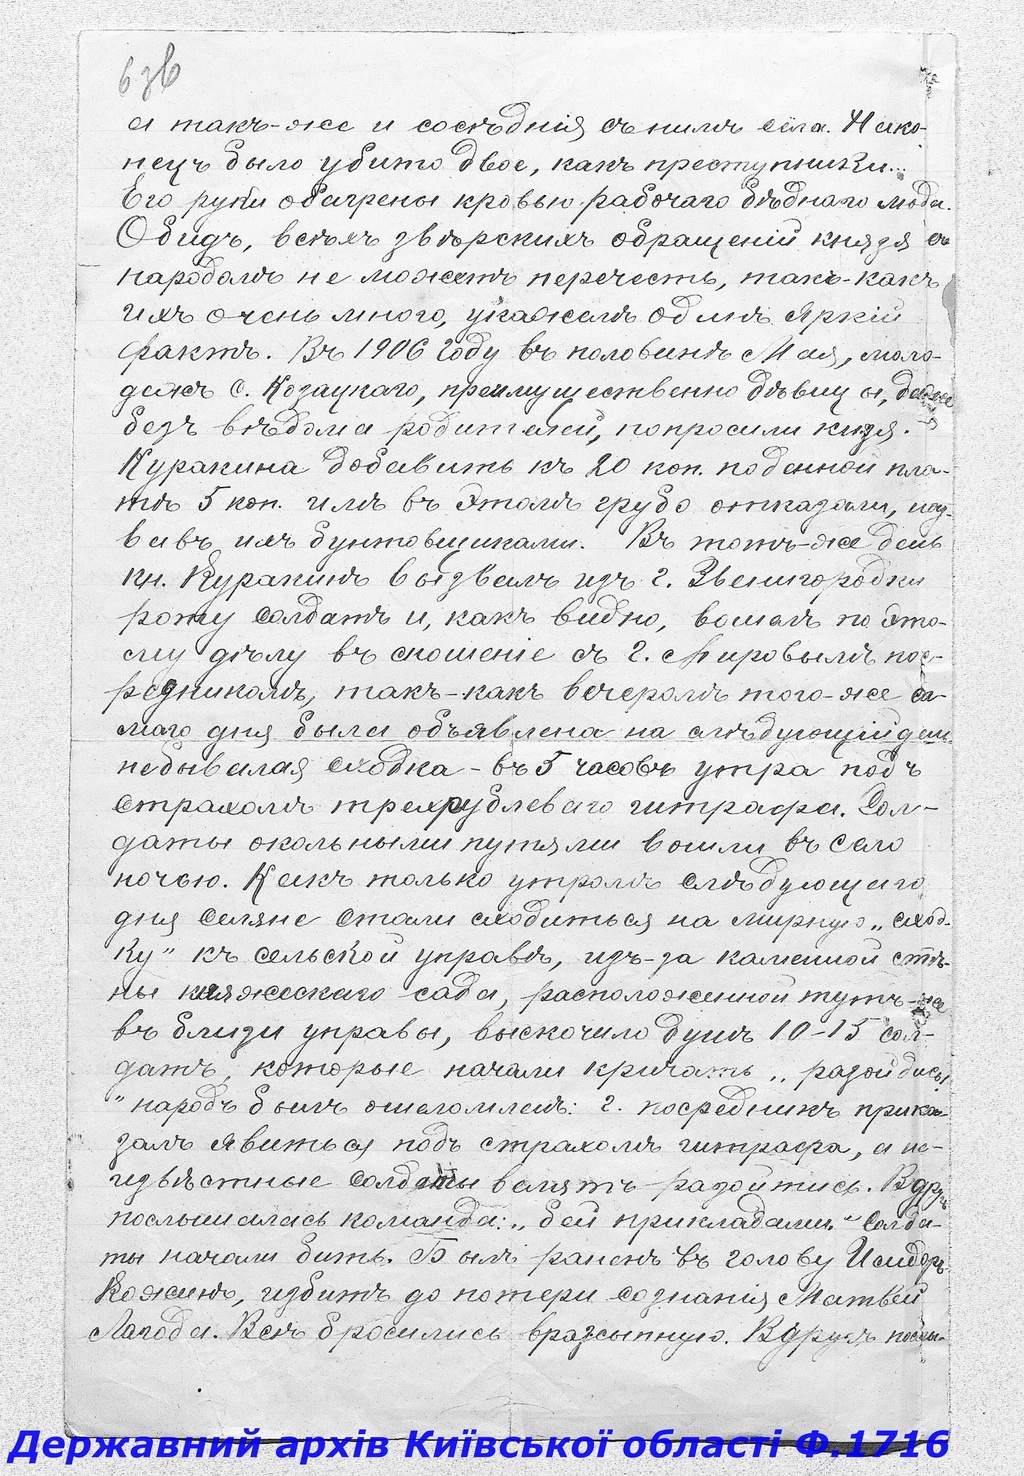 63б
а такъ-же и сосѣднія съ нимъ сёла. Нако-
нецъ было убито двое, какъ преступники...
Его руки обагрены кровью рабочаго бѣднаго люда.
Обидъ, всѣхъ звѣрскихъ обращеній князя съ
народомъ не можетъ перечесть, такъ-какъ
ихъ очень много, укажемъ одинъ яркій
фактъ. Въ 1906 году въ половинѣ Мая, моло-
дежъ с. Козацкаго, преимущественно дѣвицы, даже
безъ вѣдома родителей, попросили князя
Куракина добавить къ 20 коп. поденной пла-
тѣ 5 коп. имъ въ этомъ грубо отказали, наз-
вавъ ихъ бунтовщиками. Въ тотъ-же день
кн. Куракинъ вызвалъ изъ г. Звенигородки
роту солдатъ и, какъ видно, вошелъ по это-
му дѣлу въ сношеніе съ г. Мировымъ пос-
редникомъ, такъ-какъ вечеромъ того-же са-
маго дня была объявлена на слѣдующій день
небывалая сходка - въ 5 часовъ утра подъ
страхомъ трехрублеваго штрафа. Сол-
даты окольными путями вошли въ село
ночью. Какъ только утромъ слѣдующаго
дня селяне стали сходиться на мирную „сход-
ку" къ сельской управѣ, изъ-за каменной стѣ-
ны княжескаго сада, расположенной тутъ-же
въ близи управы, выскочило душъ 10-15 сол-
датъ, которые начали кричать „разойдись
" народъ былъ ошеломленъ: г. посредникъ прика-
залъ явиться подъ страхомъ штрафа, а не-
извѣстные солдаты велятъ разойтись. Вдругъ
послышалась команда: „бей прикладами." Солда-
ты начали бить. Былъ раненъ въ голову Исидоръ
Кожинъ, избитъ до потери сознанія Матвѣй
Лагода. Всѣ бросились вразсыпную. Вдругъ послы-
Державний архів Київської області Ф.1716